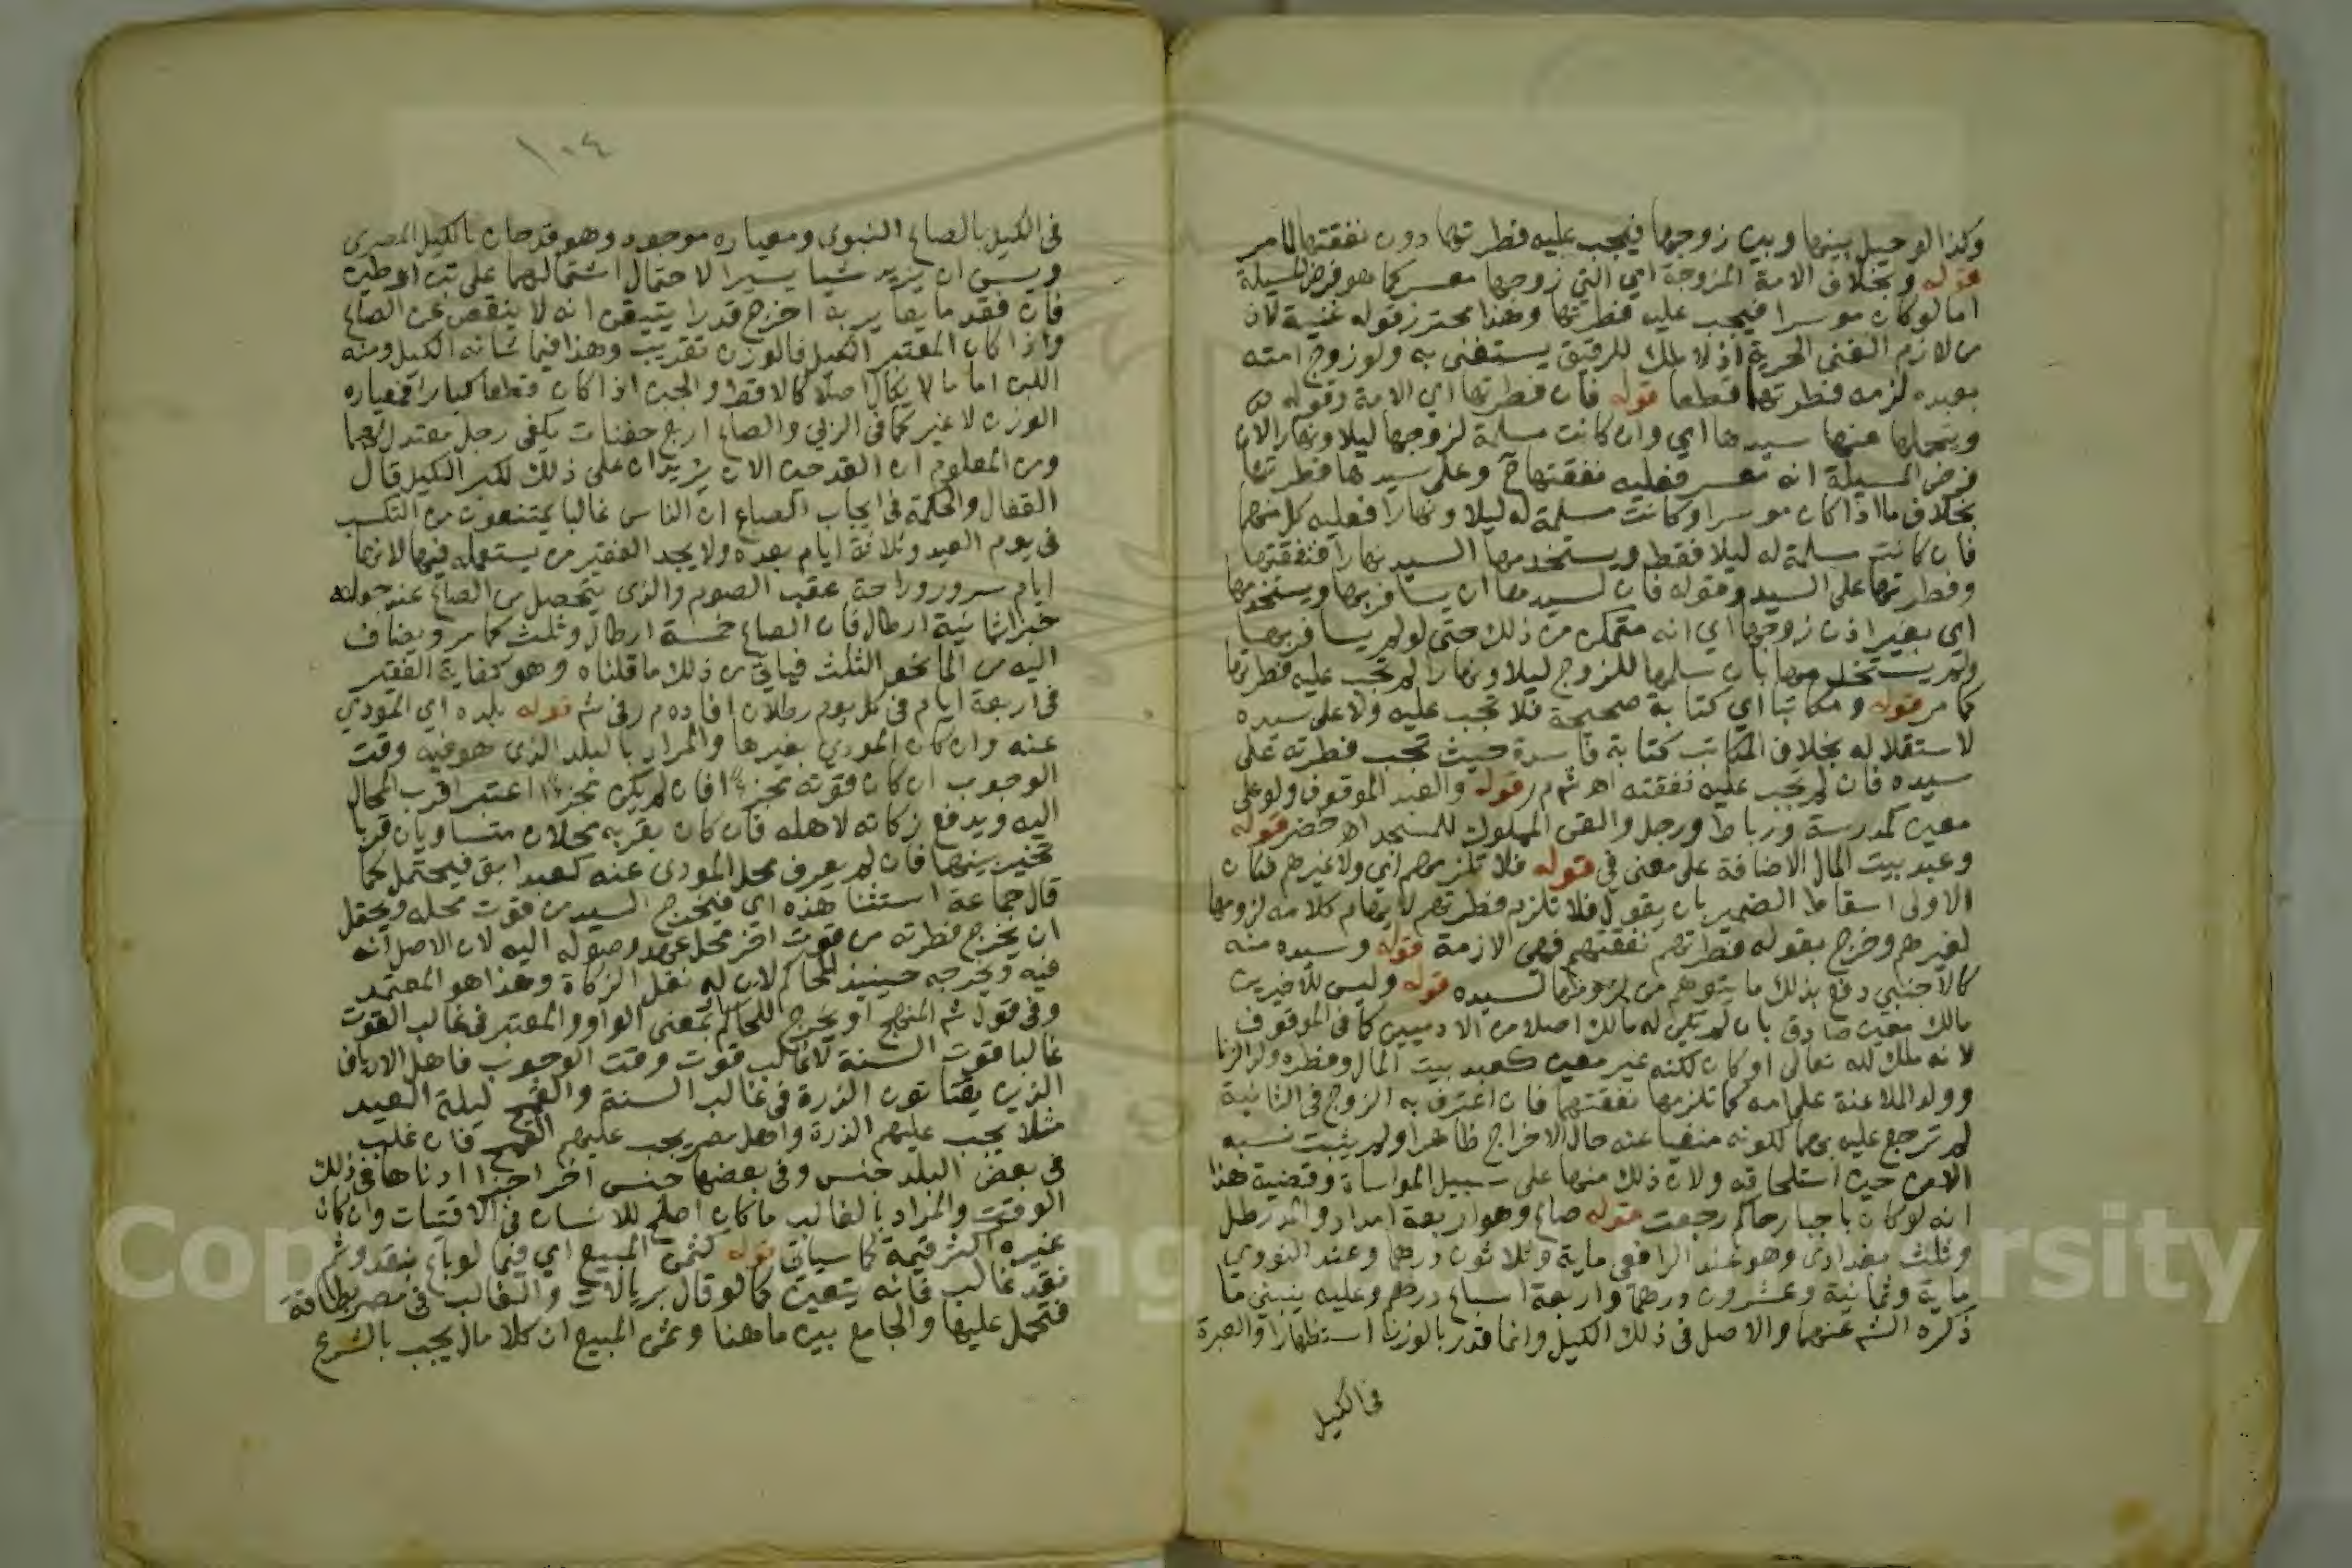 وكذا لو حيل بينها وبين زوجها فيجب عليه فطرتها دون نفقتها لما مر
قوله وبخلاف الامة المزوجة اي التي زوجها معسر كما هو فرض المسيلة
اما لو كان موسرا فيجب عليه فطرتها وهذا محترز قوله غنية لان
من لازم الغنى الحرية اذ لا ملك للرقيق يستغنى به ولو زوج امته
بعبده لزمه فطرتها قطعا قوله فان فطرتها اي الامة وقوله
ويتحملها عنها سيدها اي وان كانت مسلمة لزوجها ليلا ونهارا لان
فرض المسيلة انه معسر فعليه نفقتها ح وعلى سيدها فطرتها
بخلاف ما اذا كان موسرا وكانت مسلمة له ليلا ونهارا فعليه كل منهما
فان كانت مسلمة له ليلا فقط ويستخدمها السيد نهارا فنفقتها
وفطرتها على السيد وقوله فان لسيدها ان يسافر بها ويستخدمها
اي بغير اذن زوجها اي انه متمكن من ذلك حتى لو لم يسافر بها
ولم يستخدمها بان سلمها للزوج ليلا ونهارا لم تجب عليه فطرتها
كما مر قوله ومكاتبا اي كتابة صحيحة فلا تجب عليه ولا على سيده
لاستقلاله بخلاف المكاتب كتابة فاسدة حيث تجب فطرته على
سيده فان لم تجب عليه نفقته اه ش م ر قوله والعبد الموقوف ولو على
معين كمدرسة ورباط ورجل والقن المملوك للمسجد اه خضر قوله
وعبد بيت المال الاضافة على معنى في قوله فلا تلزمهم اي ولا غيرهم فكان
الاولى اسقاط الضمير بان يقول فلا تلزم فطرتهم لايهام كلامه لزومها
لغيرهم وخرج بقوله فطرتهم نفقتهم فهي لازمة قوله وسيده منه
كالاجنبي دفع بذلك ما يتوهم من لزومها لسيده قوله وليس للاخيرين
مالك معين صادق بان لم يكن له مالك اصلا من الادميين كما في الموقوف
لانه ملك لله تعالى او كان لكنه غير معين كعبد بيت المال وفطرة ولد الزنا
وولد الملاعنة على امه كما تلزمها نفقتهما فان اعترف به الزوج في الثانية
لم ترجع عليه بهما لكونه منفيا عنه حال الاخراج ظاهرا ولم يثبت نسبه
الا من حين استلحاقه ولان ذلك منها على سبيل المواساة وقضية هذا
انه لو كان باجبار حاكم رجعت قوله صاع وهو اربعة امداد والمد رطل
وثلث بغدادي وهو عند الرافعي ماية وثلاثون درهما وعند النووي
ماية وثمانية وعشرون درهما واربعة اسباع درهم وعليه ينبني ما
ذكره الش عنهما والاصل في ذلك الكيل وانما قدر بالوزن استظهارا والعبرة
في الكيل
١٠٤
في الكيل بالصاع النبوي ومعياره موجود وهو قدحان بالكيل المصري
ويسن ان يزيد شيا يسيرا لاحتمال اشتمالهما على تبن او طين
فان فقد ما يعاير به اخرج قدرا يتيقن انه لا ينقص عن الصاع
واذا كان المعتبر الكيل فالوزن تقريب وهذا فيما شانه الكيل ومنه
اللبن اما ما لا يكال اصلا كالاقط والجبن اذا كان قطعا كبارا فمعياره
الوزن لا غير كما في الربى والصاع اربع حفنات بكفي رجل معتدلهما
ومن المعلوم ان القدحين الان يزيدان على ذلك لكبر الكيل قال
القفال والحكمة في ايجاب الصاع ان الناس غالبا يمتنعون من التكسب
في يوم العيد وثلاثة ايام بعده ولا يجد الفقير من يستعمله فيها لانها
ايام سرور وراحة عقب الصوم والذي يتحصل من الصاع عند جعله
خبزا ثمانية ارطال فان الصاع خمسة ارطال وثلث كما مر ويضاف
اليه من الما نحو الثلث فياتي من ذلك ما قلناه وهو كفاية الفقير
في اربعة ايام في كل يوم رطلان افاده م ر في ش قوله بلده اي المودي
عنه وان كان المودي بغيرها والمراد بالبلد الذي هو فيه وقت
الوجوب ان كان قوته مجزئا فان لم يكن مجزئا اعتبر اقرب المحال
اليه ويدفع زكاته لاهله فان كان بقربه محلان متساويان قربا
تخير بينهما فان لم يعرف محل المودى عنه كعبد ابق فيحتمل كما
قال جماعة استثنا هذه اي فيخرج السيد من قوت محله ويحتمل
ان يخرج فطرته من قوت اخر محل عهد وصوله اليه لان الاصل انه
فيه ويخرجه حينيذ للحاكم لان له نقل الزكاة وهذا هو المعتمد
وفي قول ش المنهج او يخرج للحاكم بمعنى الواو والمعتبر في غالب القوت
غالبا قوت السنة لا غالب قوت وقت الوجوب فاهل الارياف
الذين يقتاتون الذرة في غالب السنة والقمح ليلة العيد
مثلا يجب عليهم الذرة واهل مصر يجب عليهم القمح فان غلب
في بعض البلد جنس وفي بعضها جنس اخر اجزا ادناها في ذلك
الوقت والمراد بالغالب ما كان اصلح للانسان في الاقتيات وان كان
غيره اكثر قيمة كما سياتي قوله كثمن المبيع اي فيما لو باع بنقد وثم
نقد غالب فانه يتعين كما لو قال بريالات والغالب في مصر بطاقة
فتحمل عليها والجامع بين ما هنا وثمن المبيع ان كلا مال يجب بالشرع